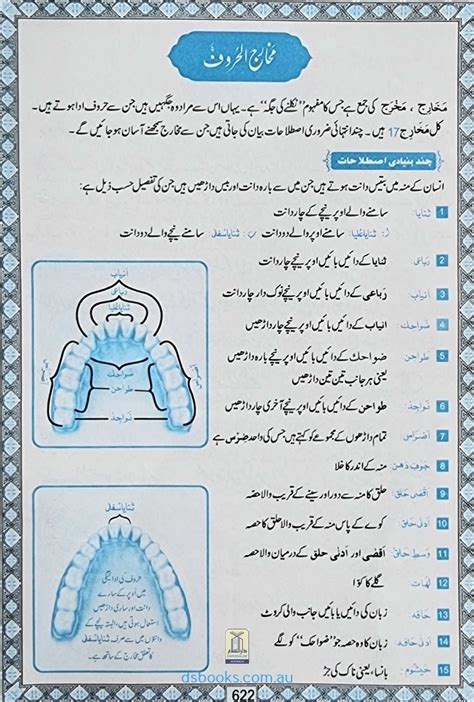 مخارج الحروف
مَخَارِج ، مَخْرَج کی جمع ہے جس کا مفہوم ”نکلنے کی جگہ“ ہے۔ یہاں اس سے مراد وہ جگہیں ہیں جن سے حروف ادا ہوتے ہیں۔
کل مَخَارِج 17 ہیں۔ چند انتہائی ضروری اصطلاحات بیان کی جاتی ہیں جن سے مخارج سمجھنے آسان ہو جائیں گے۔
چند بنیادی اصطلاحات
انسان کے منہ میں بتیس دانت ہوتے ہیں جن میں سے بارہ دانت اور بیس داڑھیں ہیں جن کی تفصیل حسب ذیل ہے:
1 ثنایا: سامنے والے اوپر نیچے کے چار دانت
ا: ثنایا عُلیا: سامنے اوپر والے دو دانت ب: ثنایا سُفلٰی: سامنے نیچے والے دو دانت
2 رباعی: ثنایا کے دائیں بائیں اوپر نیچے چار دانت
3 انیاب: رباعی کے دائیں بائیں اوپر نیچے نوک دار چار دانت
4 ضواحك: انیاب کے دائیں بائیں اوپر نیچے چار داڑھیں
5 طواحن: ضواحك کے دائیں بائیں اوپر نیچے بارہ داڑھیں
یعنی ہر جانب تین تین داڑھیں
6 نواجذ: طواحن کے دائیں بائیں اوپر نیچے آخری چار داڑھیں
7 أضراس: تمام داڑھوں کے مجموعے کو کہتے ہیں جس کی واحد ضِرْس ہے
8 جوف دهن: منہ کے اندر کا خلا
9 أقصٰی حلق: حلق کا منہ سے دور اور سینے کے قریب والا حصہ
10 أدنٰی حلق: کوے کے پاس منہ کے قریب والا حلق کا حصہ
11 وسط حلق: أقصٰی اور أدنٰی حلق کے درمیان والا حصہ
12 لهات: گلے کا کوّا
13 حافه: زبان کی دائیں یا بائیں جانب والی کروٹ
14 أدنٰی حافه: زبان کا وہ حصہ جو ”ضواحك“ کو لگے
15 خیشوم: بانسا، یعنی ناک کی جڑ
انیاب
رباعی
ثنایا عُلیا
ضواحك
طواحن
نواجذ
ثنایا سُفلٰی
حروف کی ادائیگی
میں اوپر کے سارے
دانت اور ساری داڑھیں
استعمال ہوتی ہیں، البتہ نیچے کے
دانتوں میں سے صرف ثنایا سُفلٰی
کا تعلق مخارج کے ساتھ ہے۔
dsbooks.com.au
622